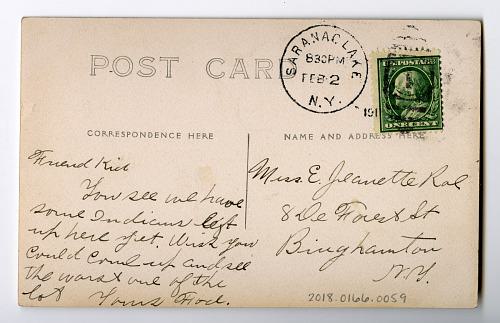 POST CARD
SARANAC LAKE
830PM
FEB 2
N.Y.
191
U.S. POSTAGE
ONE CENT
CORRESPONDENCE HERE
NAME AND ADDRESS HERE
Friend Kid
You see we have
some Indians left
up here yet. Wish you
could come up and see
the worst one of the
lot Yours Fred.
Miss. E. Jeanette
8 De Forest St
Binghamton
N.Y.
2018.0166.0059